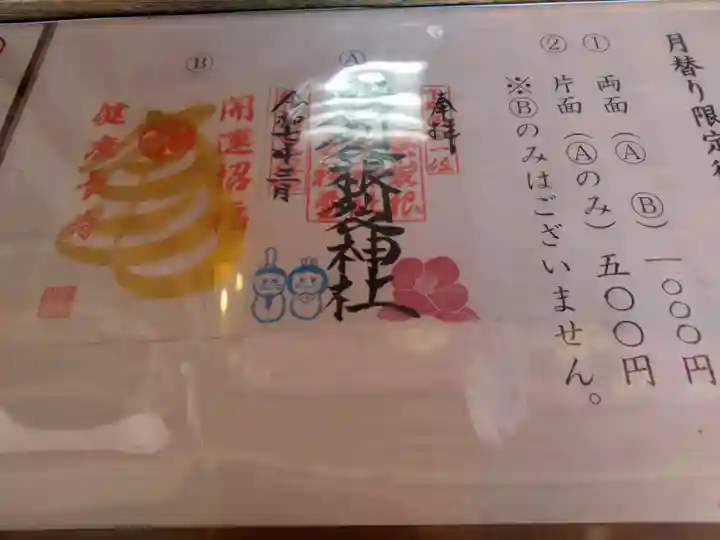 月替り限定
① 両面(Ⓐ Ⓑ)一〇〇〇円
② 片面(Ⓐのみ)五〇〇円
※Ⓑのみはございません。
Ⓐ
奉拝
神社
令和七年三月
Ⓑ
開運招福
健康長寿